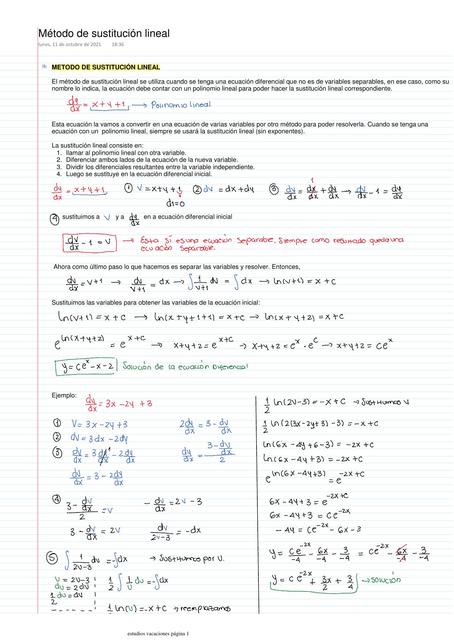 Método de sustitución lineal
lunes, 11 de octubre de 2021 18:36
METODO DE SUSTITUCIÓN LINEAL
El método de sustitución lineal se utiliza cuando se tenga una ecuación diferencial que no es de variables separables, en ese caso, como su
nombre lo indica, la ecuación debe contar con un polinomio lineal para poder hacer la sustitución lineal correspondiente.
dy/dx = x+y+1 → Polinomio lineal
Esta ecuación la vamos a convertir en una ecuación de varias variables por otro método para poder resolverla. Cuando se tenga una
ecuación con un polinomio lineal, siempre se usará la sustitución lineal (sin exponentes).
La sustitución lineal consiste en:
1. llamar al polinomio lineal con otra variable.
2. Diferenciar ambos lados de la ecuación de la nueva variable.
3. Dividir los diferenciales resultantes entre la variable independiente.
4. Luego se sustituye en la ecuación diferencial.
dy/dx = x+y+1 ① V = x+y+1 ② dv = dx+dy ③ dv/dx = dx/dx + dy/dx → dv/dx - 1 = dy/dx
d1=0
④ sustituimos a v y a dy/dx en a ecuación diferencial inicial
dv/dx - 1 = v → Esta sí es una ecuación separable, siempre como resultado queda una
ecuación separable.
Ahora como último paso lo que hacemos es separar las variables y resolver. Entonces,
dv/dx = v+1 → dv/v+1 = dx → ∫ 1/v+1 dv = ∫ dx → ln(v+1) = x+c
Sustituimos las variables para obtener las variables de la ecuación inicial:
ln(v+1) = x+c → ln(x+y+1+1) = x+c → ln(x+y+2) = x+c
e^ln(x+y+2) = e^x+c → x+y+2 = e^x+c → x+y+2 = e^x · e^c → x+y+2 = ce^x
y = ce^x - x - 2 Solución de la ecuación Diferencial
Ejemplo: dy/dx = 3x - 2y + 3
① V = 3x - 2y + 3 2dy/dx = 3 - dv/dx
② dv = 3dx - 2dy
③ dv/dx = 3 dx/dx - 2 dy/dx dy/dx = 3 - dv/dx / 2
dv/dx = 3 - 2dy/dx
④ 3 - dv/dx / 2 = v - dv/dx = 2v - 3
3 - dv/dx = 2v dv/2v-3 = -dx
⑤ ∫ 1/2v-3 dv = -∫dx → Sustituimos por U.
U = 2v-3
du = 2dv 1/2 ∫ 1/U du = -∫dx
1/2 du = dv
1/2 ln(U) = -x+c → reemplazamos
1/2 ln(2v-3) = -x+c → Sustituimos v
1/2 ln(2(3x-2y+3)-3) = -x+c
ln(6x-4y+6-3) = -2x+c
ln(6x-4y+3) = -2x+c
e^ln(6x-4y+3) = e^-2x+c
6x-4y+3 = e^-2x+c
6x-4y+3 = ce^-2x
-4y = ce^-2x - 6x - 3
y = ce^-2x/-4 - 6x/-4 - 3/-4 = ce^-2x - 6x/-4 - 3/-4
y = ce^-2x + 3x/2 + 3/4 → solución
estudios vacaciones página 1